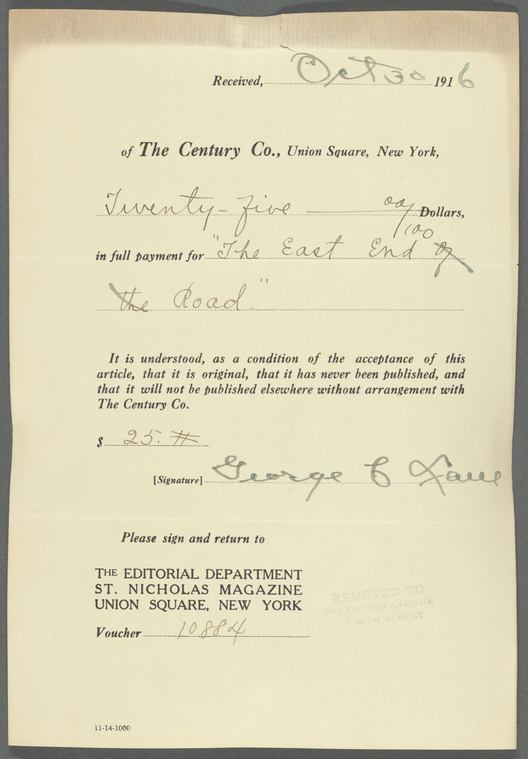 Received, Oct 30 1916
of The Century Co., Union Square, New York,
Twenty-five 00/100 Dollars,
in full payment for "The East End of
the Road."
It is understood, as a condition of the acceptance of this
article, that it is original, that it has never been published, and
that it will not be published elsewhere without arrangement with
The Century Co.
$ 25.
[Signature] George C Lane
Please sign and return to
THE EDITORIAL DEPARTMENT
ST. NICHOLAS MAGAZINE
UNION SQUARE, NEW YORK
REMOVED TO
FOURTH AVENUE
AT 26TH STREET
Voucher 10884
11-14-1000